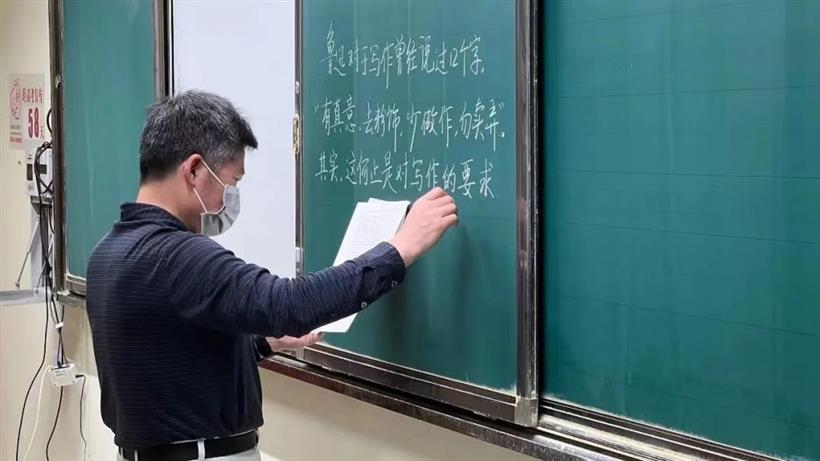 距高考仅有
58
鲁迅对于写作曾经说过12个字,
"有真意,去粉饰,少做作,勿卖弄"。
其实,这何止是对写作的要求